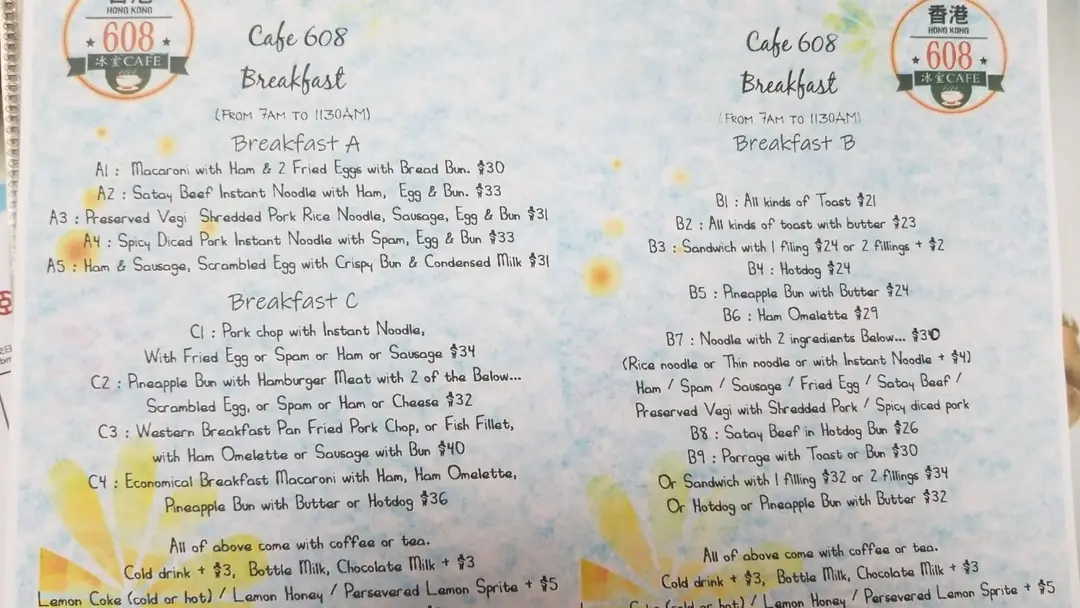 香港
HONG KONG
608
冰室CAFE
Cafe 608
Breakfast
(FROM 7AM TO 1130AM)
Breakfast A
A1 : Macaroni with Ham & 2 Fried Eggs with Bread Bun. $30
A2 : Satay Beef Instant Noodle with Ham, Egg & Bun. $33
A3 : Preserved Vegi Shredded Pork Rice Noodle, Sausage, Egg & Bun $31
A4 : Spicy Diced Pork Instant Noodle with Spam, Egg & Bun $33
A5 : Ham & Sausage, Scrambled Egg with Crispy Bun & Condensed Milk $31
Breakfast C
C1 : Pork chop with Instant Noodle,
With Fried Egg or Spam or Ham or Sausage $34
C2 : Pineapple Bun with Hamburger Meat with 2 of the Below...
Scrambled Egg, or Spam or Ham or Cheese $32
C3 : Western Breakfast Pan Fried Pork Chop, or Fish Fillet,
with Ham Omelette or Sausage with Bun $40
C4 : Economical Breakfast Macaroni with Ham, Ham Omelette,
Pineapple Bun with Butter or Hotdog $36
All of above come with coffee or tea.
Cold drink + $3, Bottle Milk, Chocolate Milk + $3
Lemon Coke (cold or hot) / Lemon Honey / Persevered Lemon Sprite + $5
香港
HONG KONG
608
冰室CAFE
Cafe 608
Breakfast
(FROM 7AM TO 1130AM)
Breakfast B
B1 : All kinds of Toast $21
B2 : All kinds of toast with butter $23
B3 : Sandwich with 1 filing $24 or 2 fillings + $2
B4 : Hotdog $24
B5 : Pineapple Bun with Butter $24
B6 : Ham Omelette $29
B7 : Noodle with 2 ingredients Below... $30
(Rice noodle or Thin noodle or with Instant Noodle + $4)
Ham / Spam / Sausage / Fried Egg / Satay Beef /
Preserved Vegi with Shredded Pork / Spicy diced pork
B8 : Satay Beef in Hotdog Bun $26
B9 : Porrage with Toast or Bun $30
Or Sandwich with 1 filling $32 or 2 fillings $34
Or Hotdog or Pineapple Bun with Butter $32
All of above come with coffee or tea.
Cold drink + $3, Bottle Milk, Chocolate Milk + $3
Coke (cold or hot) / Lemon Honey / Persevered Lemon Sprite + $5